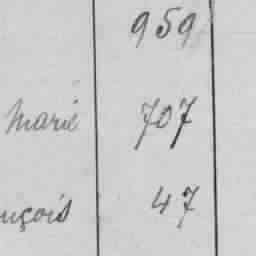 959
Marie 707
nçois 47